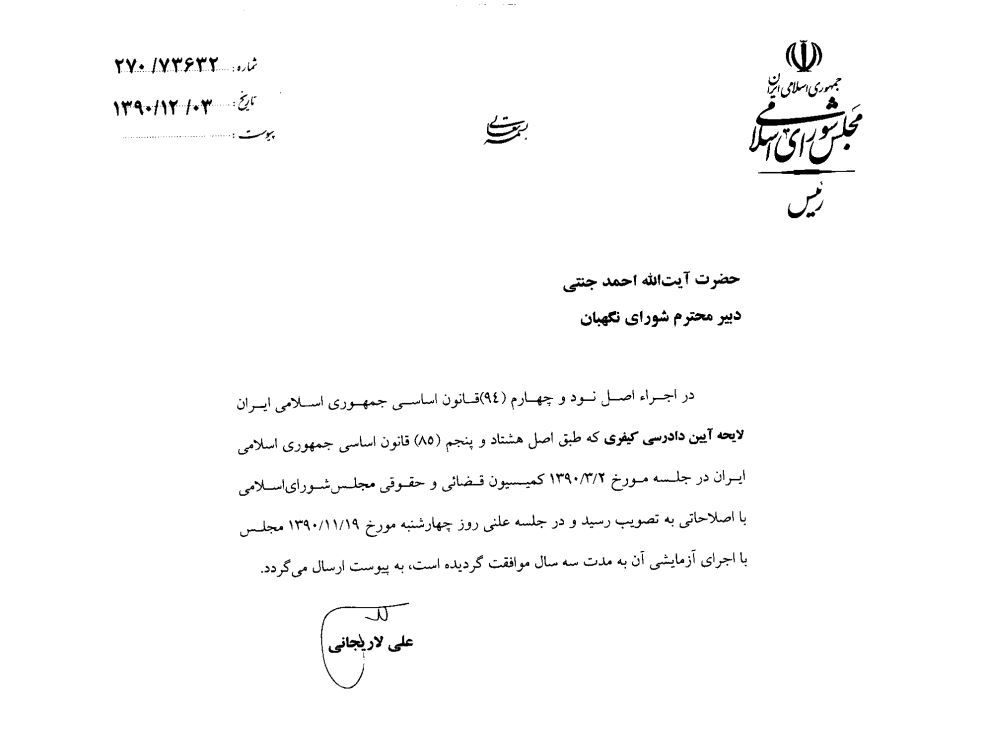 جمهوری اسلامی ایران
مجلس شورای اسلامی
رئیس
بسمه تعالی
شماره: ۲۷۰/۷۳۶۳۲
تاریخ: ۱۳۹۰/۱۲/۰۳
پیوست:
حضرت آیت‌الله احمد جنتی
دبیر محترم شورای نگهبان
در اجراء اصل نود و چهارم (۹٤)قانون اساسی جمهوری اسلامی ایران
لایحه آیین دادرسی کیفری که طبق اصل هشتاد و پنجم (۸۵) قانون اساسی جمهوری اسلامی
ایران در جلسه مورخ ۱۳۹۰/۳/۲ کمیسیون قضائی و حقوقی مجلس‌شورای‌اسلامی
با اصلاحاتی به تصویب رسید و در جلسه علنی روز چهارشنبه مورخ ۱۳۹۰/۱۱/۱۹ مجلس
با اجرای آزمایشی آن به مدت سه سال موافقت گردیده است، به پیوست ارسال می‌گردد.
علی لاریجانی